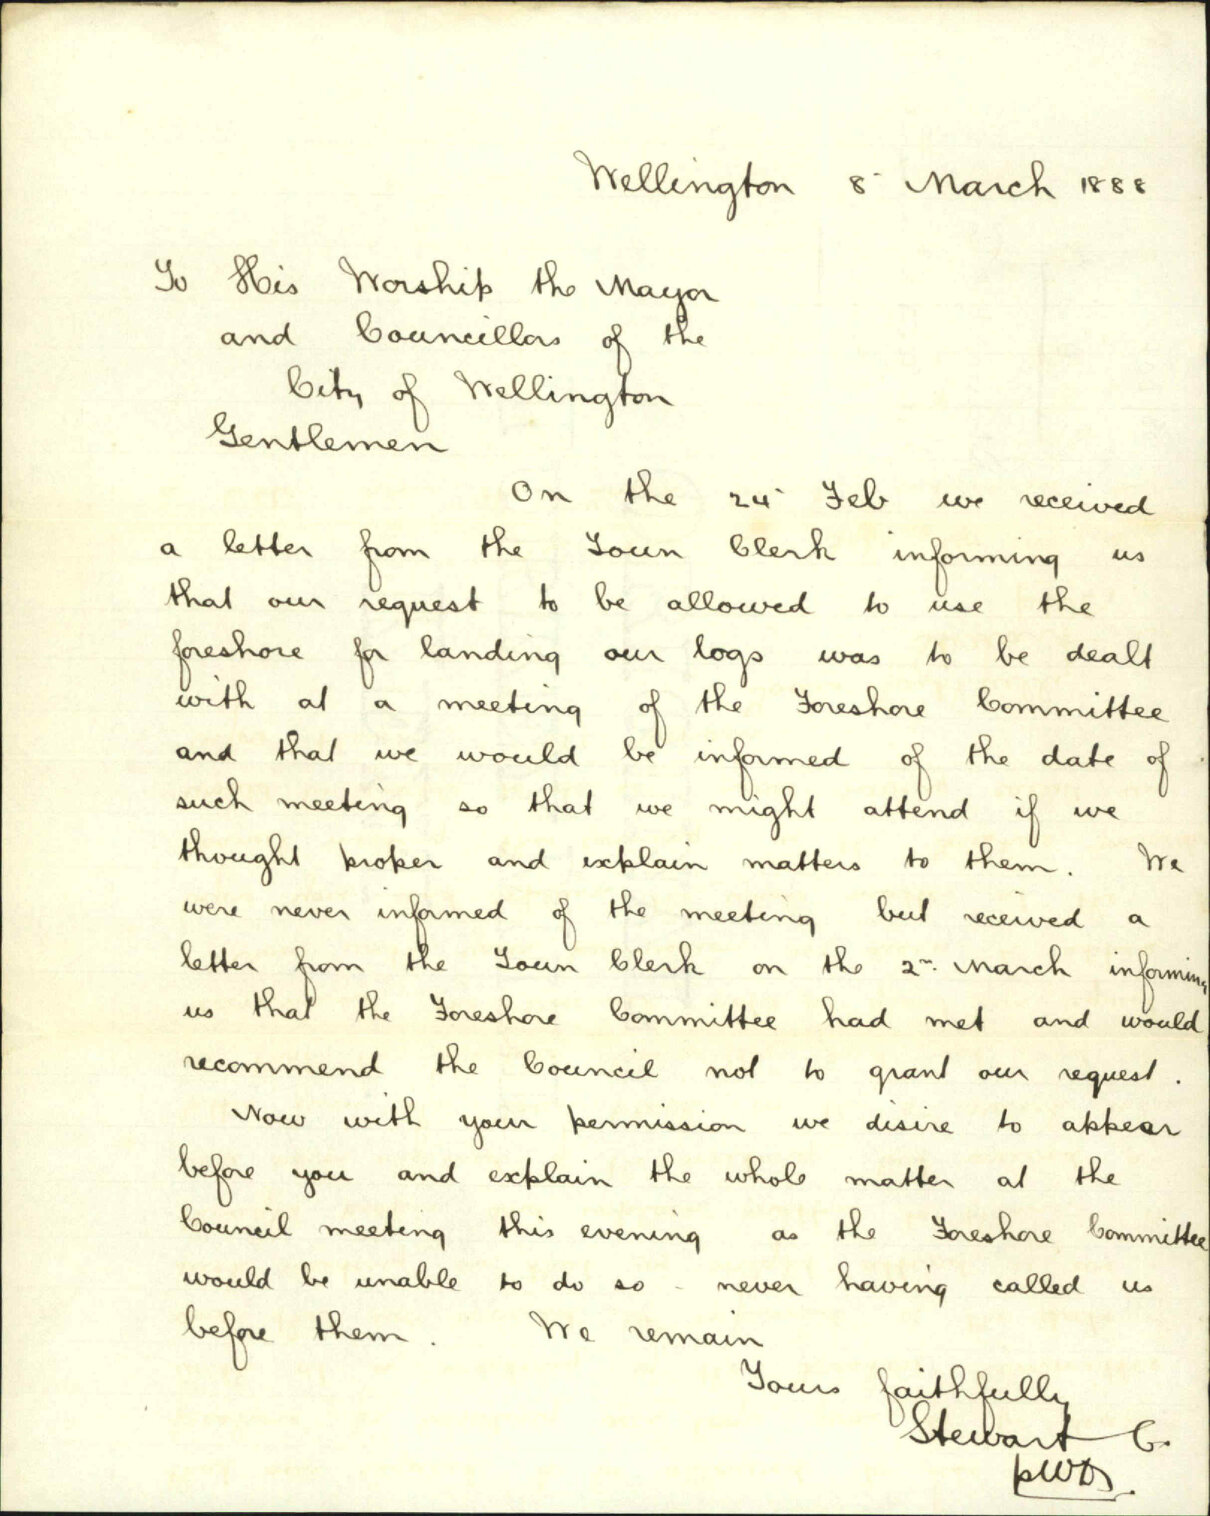 Wellington 8 March 1888
To His Worship the Mayor
and Councillors of the
City of Wellington
Gentlemen
On the 24 Feb we received
a letter from the Town Clerk informing us
that our request to be allowed to use the
foreshore for landing our logs was to be dealt
with at a meeting of the Foreshore Committee
and that we would be informed of the date of
such meeting so that we might attend if we
thought proper and explain matters to them. We
were never informed of the meeting but received a
letter from the Town Clerk on the 2nd. March informing
us that the Foreshore Committee had met and would
recommend the Council not to grant our request.
Now with your permission we disire to appear
before you and explain the whole matter at the
Council meeting this evening as the Foreshore Committee
would be unable to do so - never having called us
before them. We remain
Yours faithfully
Stewart Co